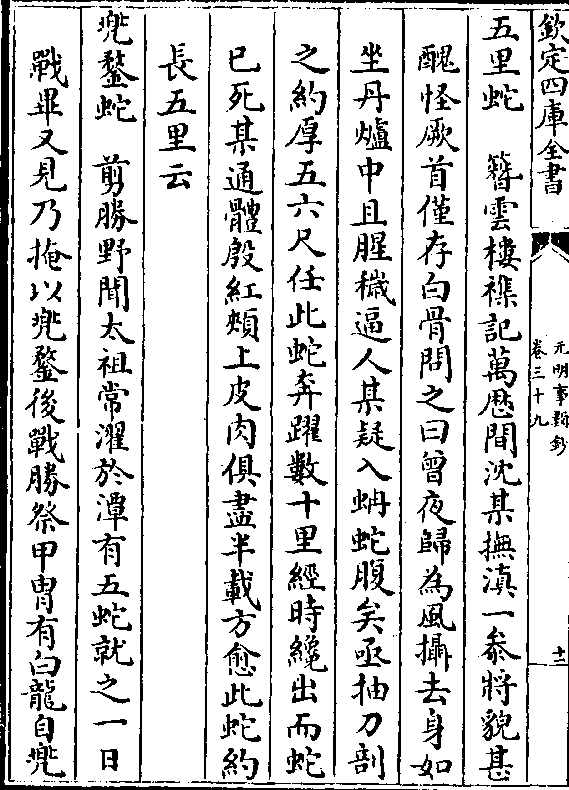 欽定四庫全書
元明事類鈔
卷三十九
十三
五里蛇　簪雲樓襍記萬歷間沈某撫滇一叅將貌甚
醜怪厥首僅存白骨問之曰曾夜歸為風攝去身如
坐丹爐中且腥穢逼人某疑入蚺蛇腹矣亟抽刀剖
之約厚五六尺任此蛇奔躍數十里經時纔出而蛇
已死某通體殷紅頰上皮肉俱盡半載方愈此蛇約
長五里云
兠鍪蛇　剪勝野聞太祖常濯於潭有五蛇就之一日
戰畢又見乃掩以兠鍪後戰勝祭甲胄有白龍自兠